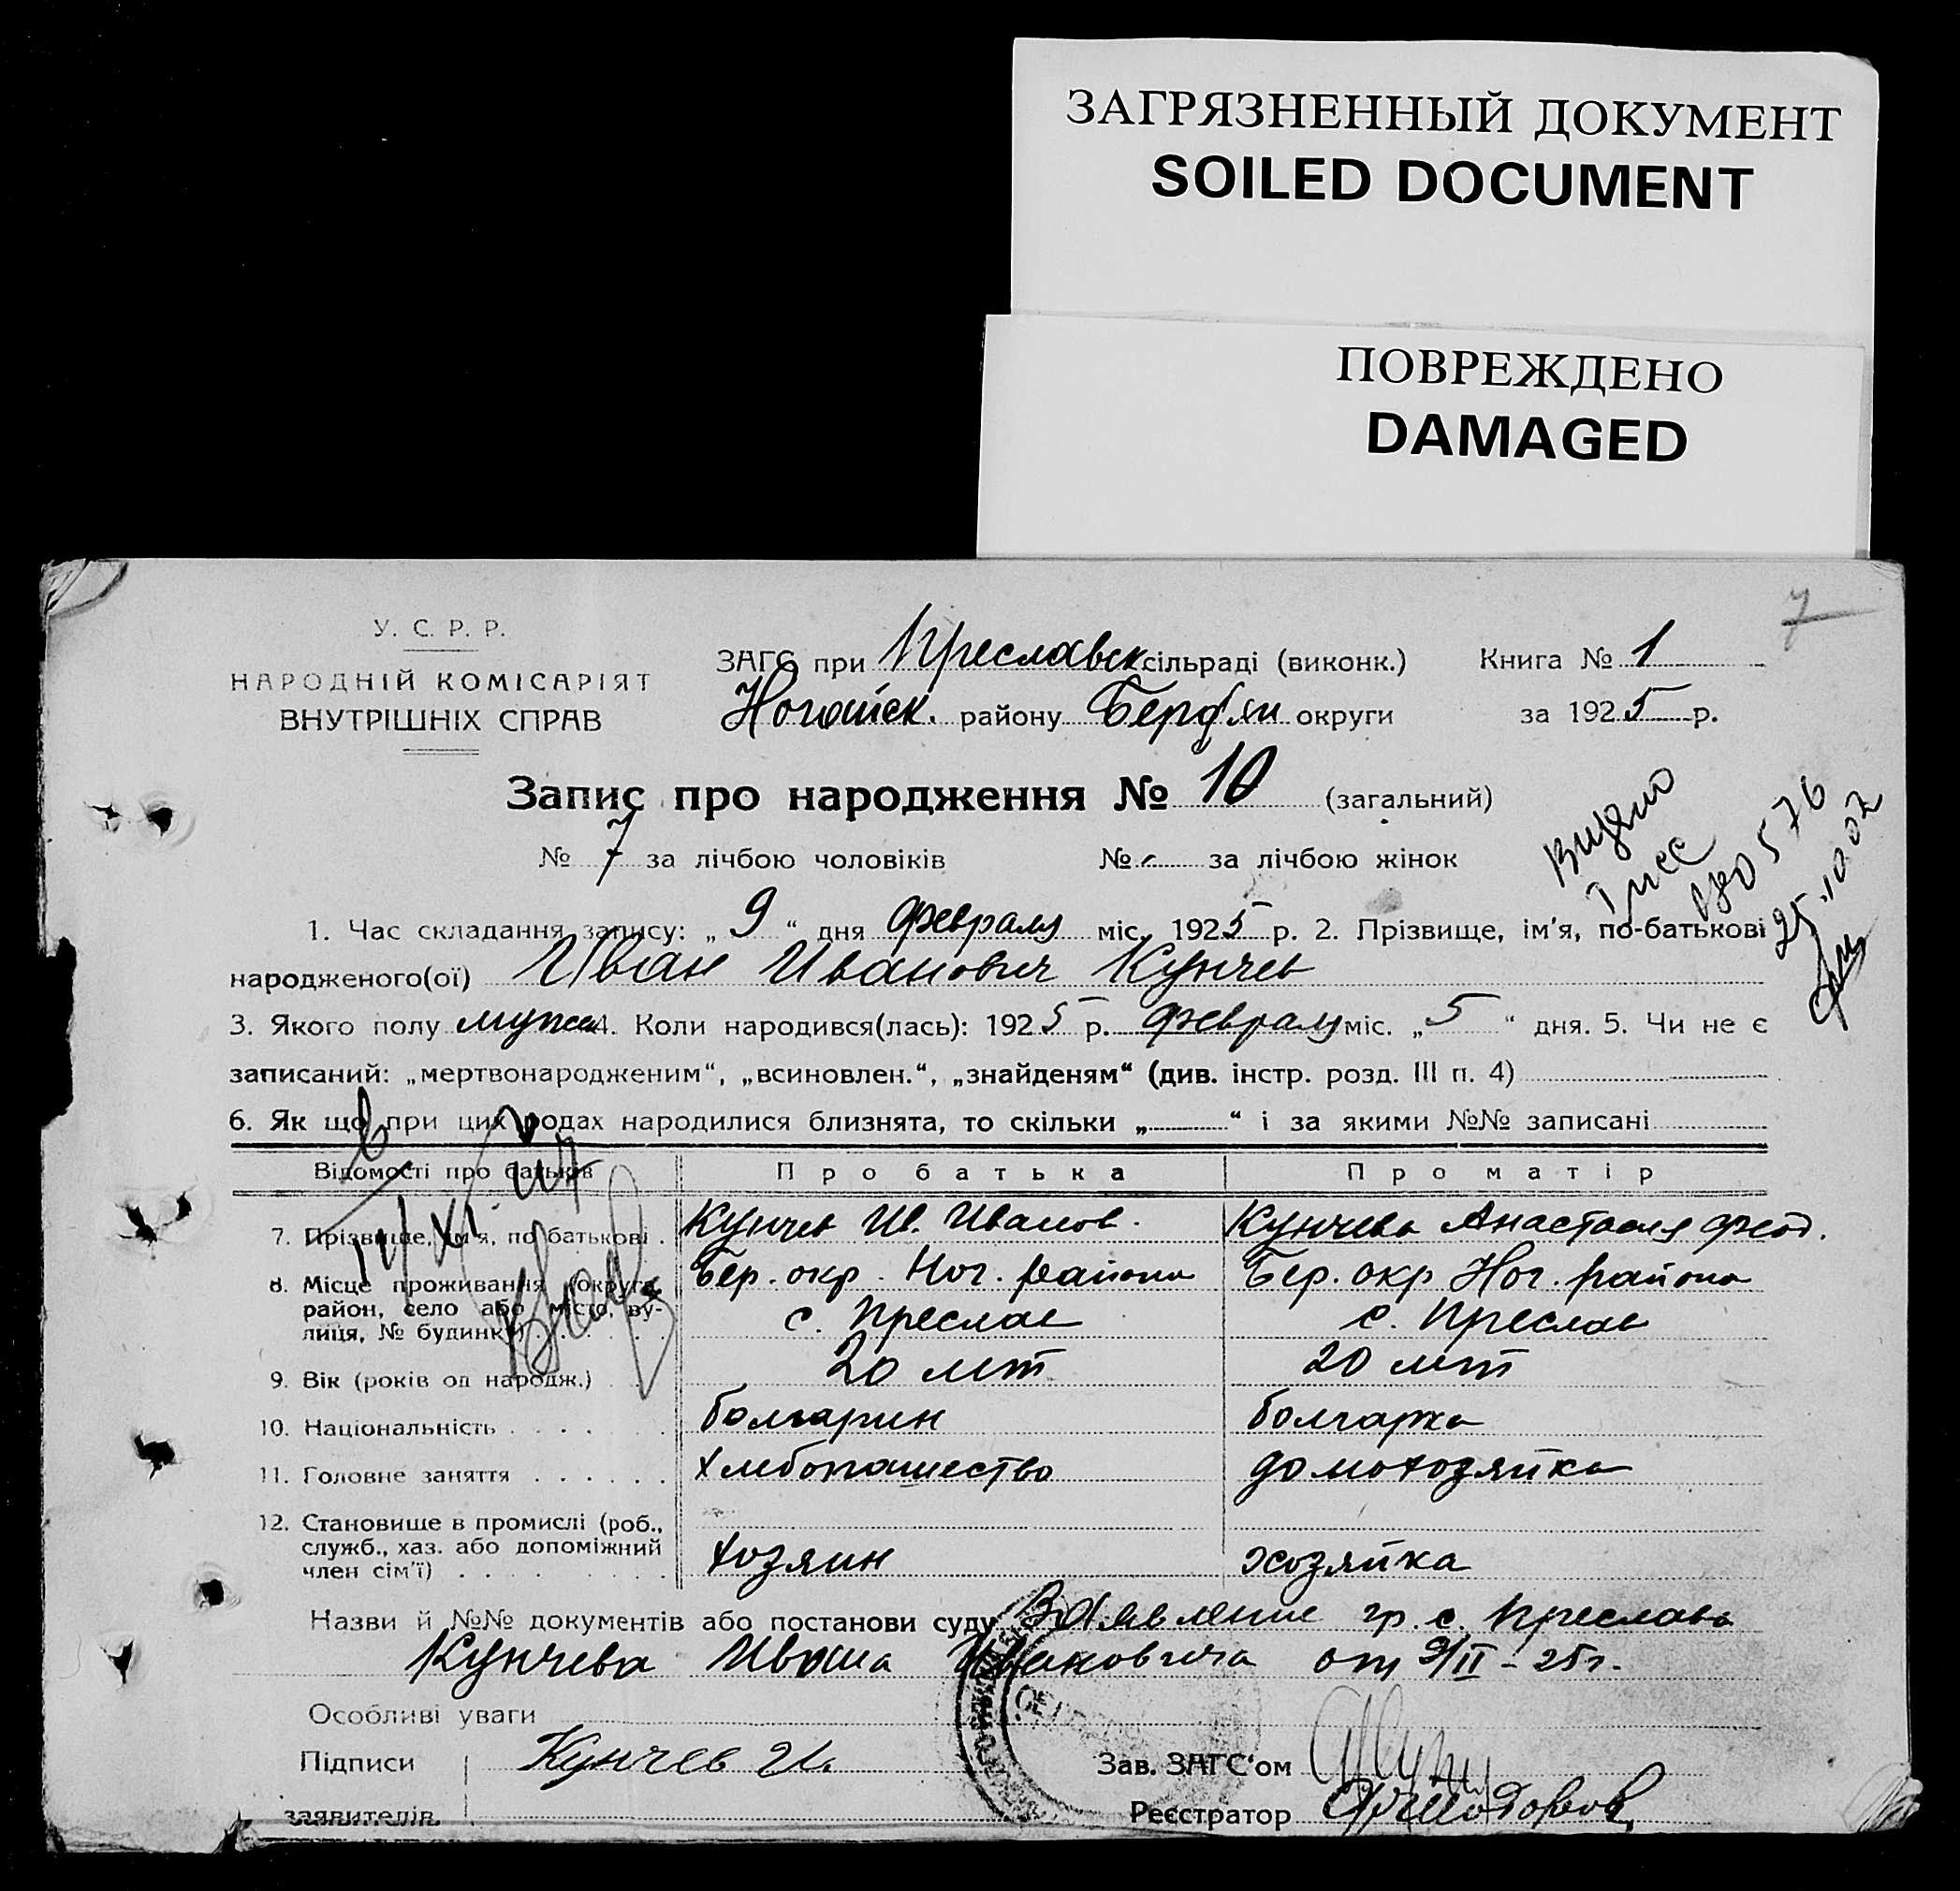 ЗАГРЯЗНЕННЫЙ ДОКУМЕНТ
SOILED DOCUMENT
ПОВРЕЖДЕНО
DAMAGED
7
У. С. Р. Р.
НАРОДНІЙ КОМІСАРІЯТ
ВНУТРІШНІХ СПРАВ
ЗАГС при Преславск сільраді (виконк.) Книга № 1
Ногайск. району Бердян округи за 1925 р.
Запис про народження № 10 (загальний)
№ 7 за лічбою чоловіків № - за лічбою жінок
Видано
180576
25.10.02
1. Час складання запису: „ 9 “ дня февраля міс. 1925 р. 2. Прізвище, ім'я, по-батькові
народженого(ої) Иван Иванович Кунчев
3. Якого полу мужск 4. Коли народився(лась): 1925 р. февраля міс. „ 5 “ дня. 5. Чи не є
записаний: „мертвонародженим“, „всиновлен.“, „знайденям“ (див. інстр. розд. III п. 4)
6. Як що при цих родах народилися близнята, то скільки „ “ і за якими №№ записані
Відомості про батьків Про батька Про матір
7. Прізвище, ім'я, по батькові . Кунчев Ив. Иванов. Кунчева Анастасия Феод.
8. Місце проживання (округа, Бер. окр. Ног. района Бер. окр Ног. района
район, село або місто, ву- с. Преслав с. Преслав
лиця, № будинку)
9. Вік (років од народж.) 20 лет 20 лет
10. Національність болгарин болгарка
11. Головне заняття хлебопашество домохозяйка
12. Становище в промислі (роб.,
служб., хаз. або допоміжний
член сім'ї) хозяин хозяйка
Назви й №№ документів або постанови суду Заявление гр. с. Преслава
Кунчева Ивана Ивановича от 9/II - 25 г.
Особливі уваги
Підписи Кунчев И. Зав. ЗАГС'ом
заявителів Реєстратор